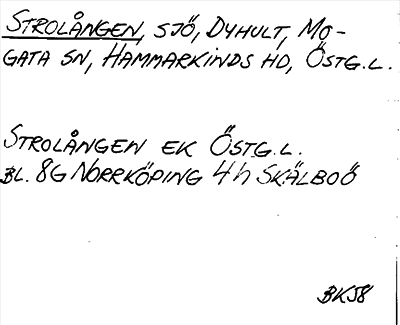 STROLÅNGEN, SJÖ, DYHULT, MO-
GATA SN, HAMMARKINDS HD, ÖSTG.L.
STROLÅNGEN EK ÖSTG.L.
BL. 8G NORRKÖPING 4h SKÄLBOÖ
BK58